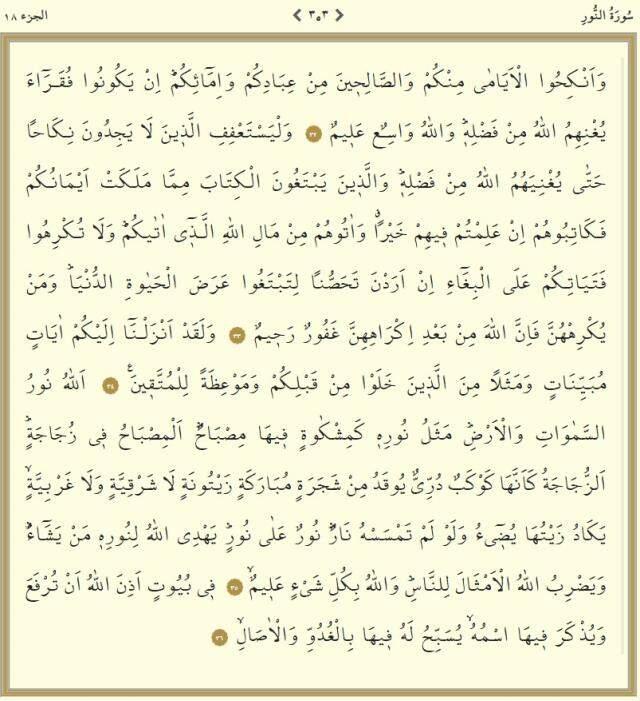 سُورَةُ النُّورِ ٣٥٣ الجزء ١٨
وَاَنْكِحُوا الْاَيَامٰى مِنْكُمْ وَالصَّالِحٖينَ مِنْ عِبَادِكُمْ وَاِمَٓائِكُمْۜ اِنْ يَكُونُوا فُقَرَٓاءَ
يُغْنِهِمُ اللّٰهُ مِنْ فَضْلِهٖۜ وَاللّٰهُ وَاسِعٌ عَلٖيمٌ ٣٢ وَلْيَسْتَعْفِفِ الَّذٖينَ لَا يَجِدُونَ نِكَاحًا
حَتّٰى يُغْنِيَهُمُ اللّٰهُ مِنْ فَضْلِهٖۜ وَالَّذٖينَ يَبْتَغُونَ الْكِتَابَ مِمَّا مَلَكَتْ اَيْمَانُكُمْ
فَكَاتِبُوهُمْ اِنْ عَلِمْتُمْ فٖيهِمْ خَيْرًاۗ وَاٰتُوهُمْ مِنْ مَالِ اللّٰهِ الَّذٖٓى اٰتٰيكُمْۜ وَلَا تُكْرِهُوا
فَتَيَاتِكُمْ عَلَى الْبِغَٓاءِ اِنْ اَرَدْنَ تَحَصُّنًا لِتَبْتَغُوا عَرَضَ الْحَيٰوةِ الدُّنْيَاۜ وَمَنْ
يُكْرِهْهُنَّ فَاِنَّ اللّٰهَ مِنْ بَعْدِ اِكْرَاهِهِنَّ غَفُورٌ رَحٖيمٌ ٣٣ وَلَقَدْ اَنْزَلْنَٓا اِلَيْكُمْ اٰيَاتٍ
مُبَيِّنَاتٍ وَمَثَلًا مِنَ الَّذٖينَ خَلَوْا مِنْ قَبْلِكُمْ وَمَوْعِظَةً لِلْمُتَّقٖينَۚ ٣٤ اَللّٰهُ نُورُ
السَّمٰوَاتِ وَالْاَرْضِۜ مَثَلُ نُورِهٖ كَمِشْكٰوةٍ فٖيهَا مِصْبَاحٌۜ اَلْمِصْبَاحُ فٖى زُجَاجَةٍۜ
اَلزُّجَاجَةُ كَاَنَّهَا كَوْكَبٌ دُرِّىٌّ يُوقَدُ مِنْ شَجَرَةٍ مُبَارَكَةٍ زَيْتُونَةٍ لَا شَرْقِيَّةٍ وَلَا غَرْبِيَّةٍۙ
يَكَادُ زَيْتُهَا يُضٖٓىءُ وَلَوْ لَمْ تَمْسَسْهُ نَارٌۜ نُورٌ عَلٰى نُورٍۜ يَهْدِى اللّٰهُ لِنُورِهٖ مَنْ يَشَٓاءُۜ
وَيَضْرِبُ اللّٰهُ الْاَمْثَالَ لِلنَّاسِۜ وَاللّٰهُ بِكُلِّ شَیْءٍ عَلٖيمٌۙ ٣٥ فٖى بُيُوتٍ اَذِنَ اللّٰهُ اَنْ تُرْفَعَ
وَيُذْكَرَ فٖيهَا اسْمُهُۙ يُسَبِّحُ لَهُ فٖيهَا بِالْغُدُوِّ وَالْاٰصَالِۙ ٣٦